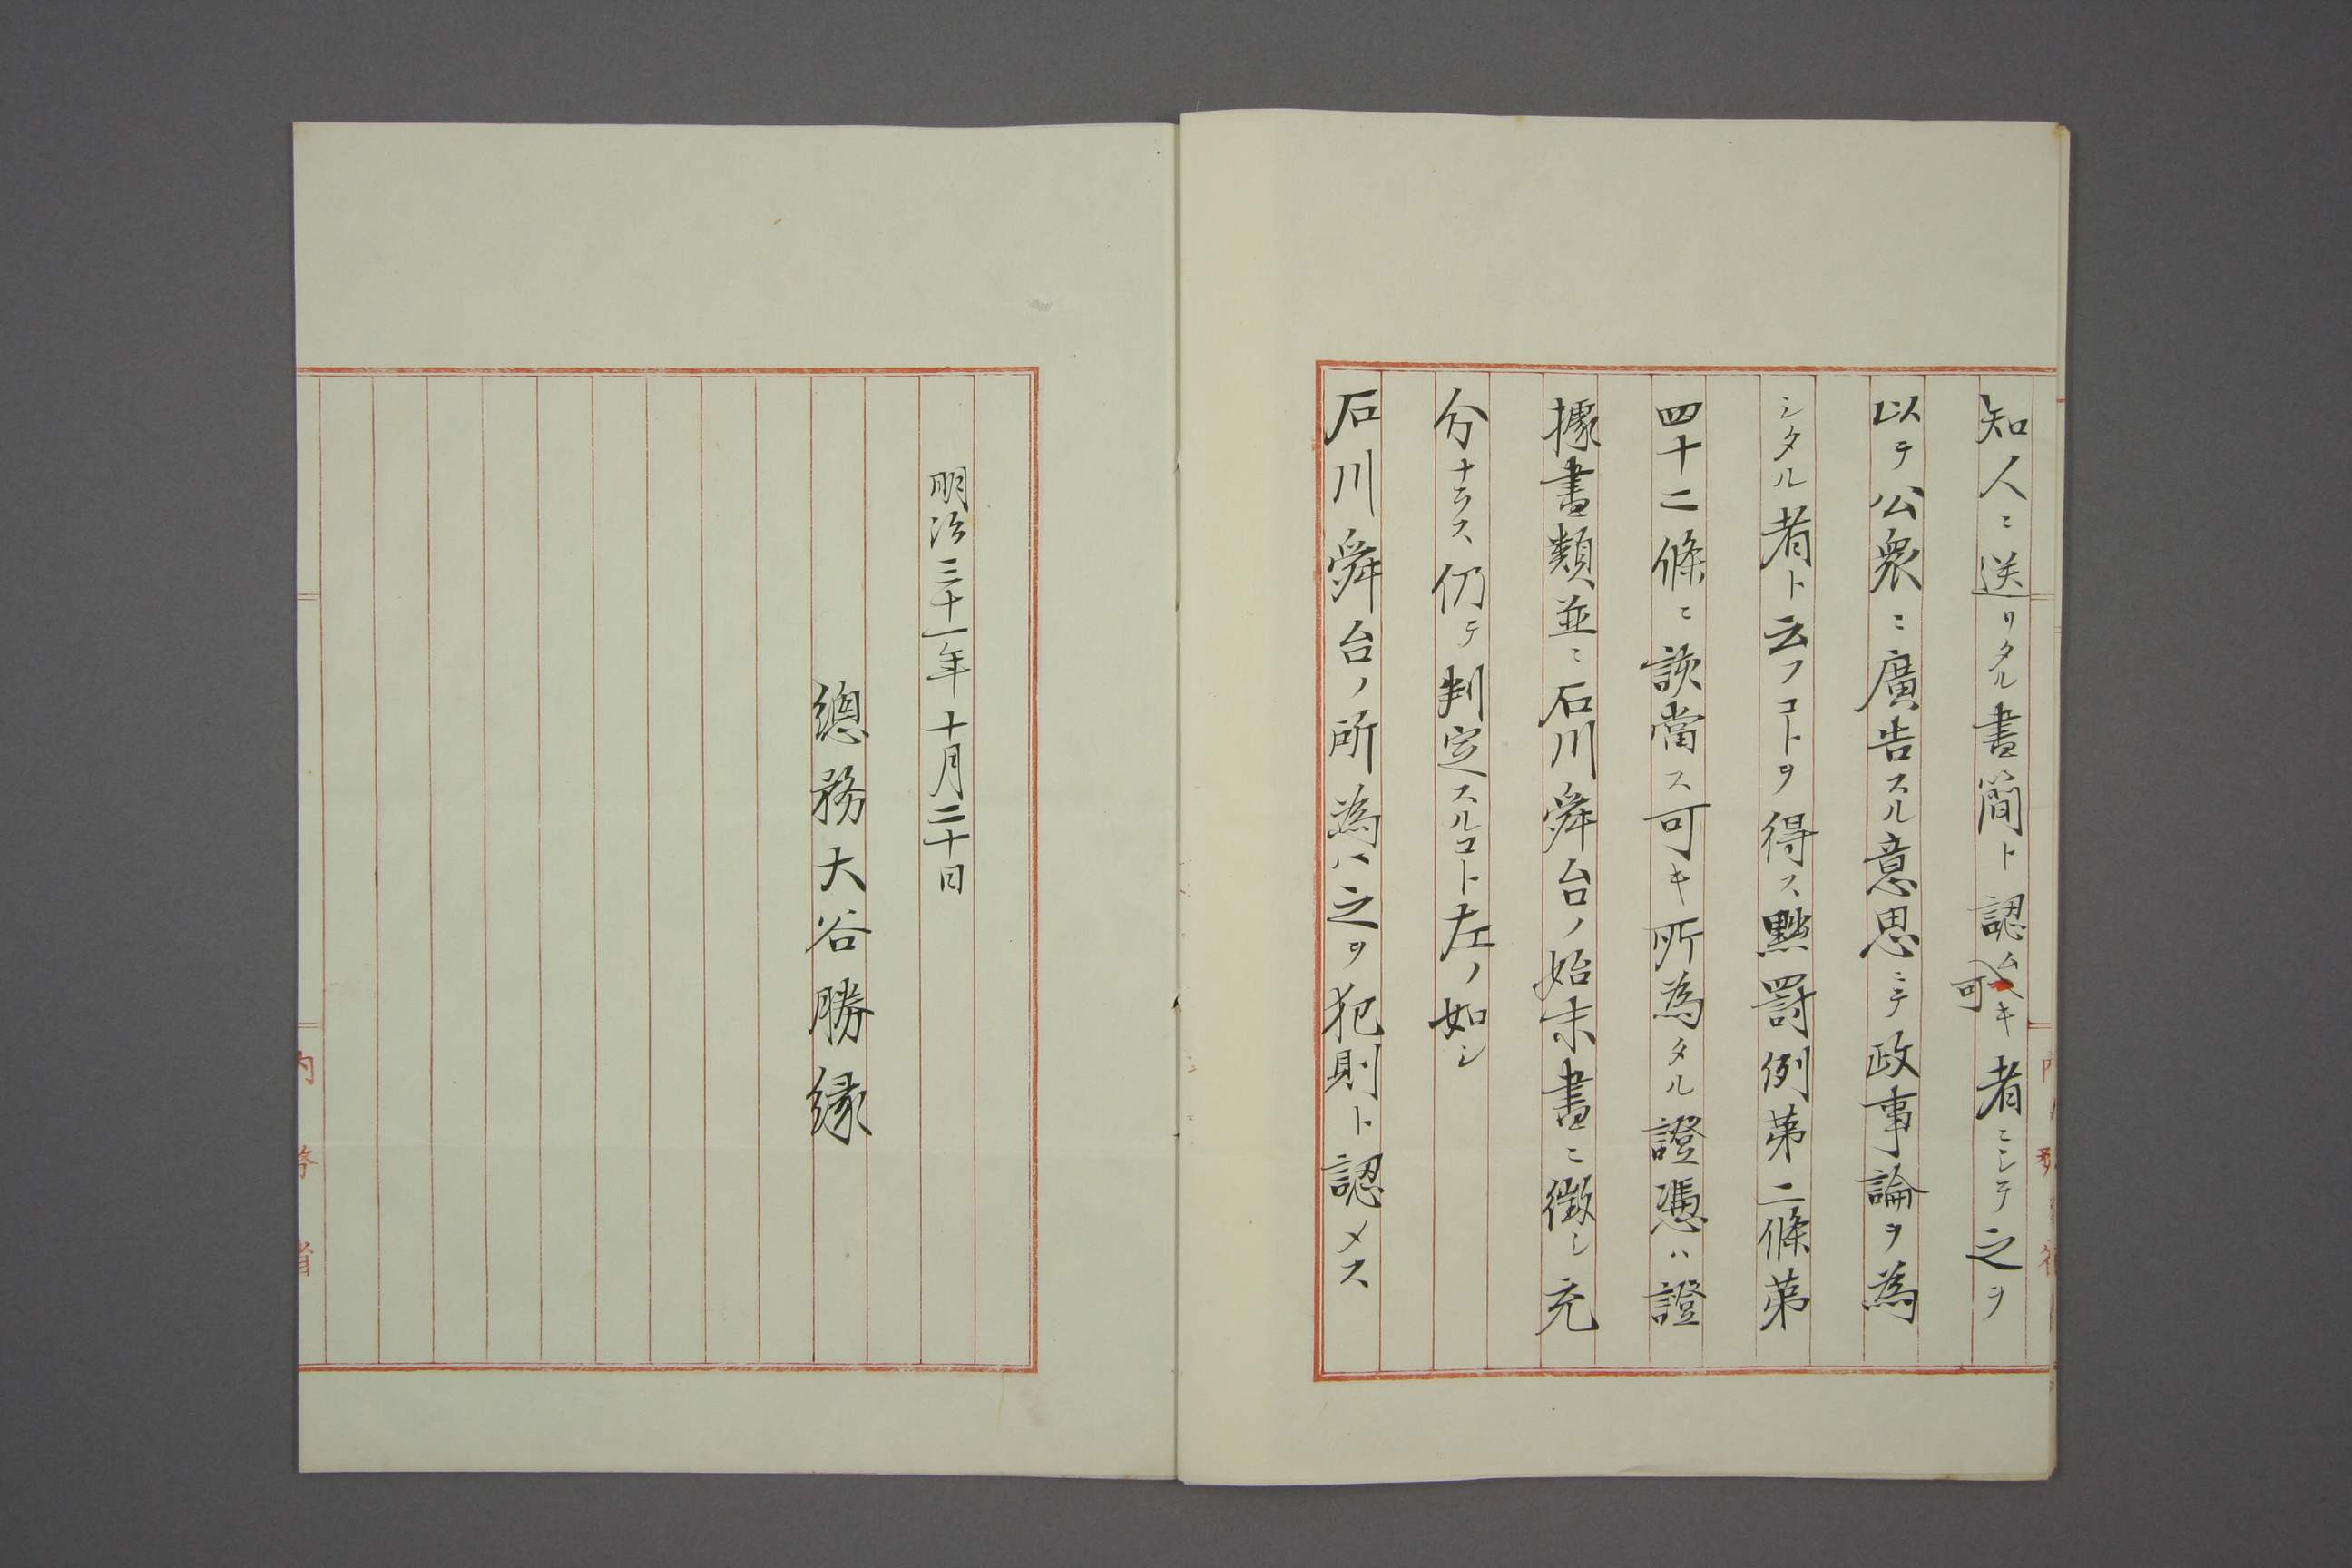 知人ニ送リタル書簡ト認ム可キ者ニシテ之ヲ
以テ公衆ニ廣告スル意思ニテ政事論ヲ為
シタル者ト云フコトヲ得ス黜罰例第二條第
四十二條ニ該當ス可キ所為タル證憑ハ證
據書類並ニ石川舜台ノ始末書ニ徴シ充
分ナラス仍テ判定スルコト左ノ如シ
石川舜台ノ所為ハ之ヲ犯則ト認メス
明治三十一年十月三十日
總務大谷勝縁
内務省